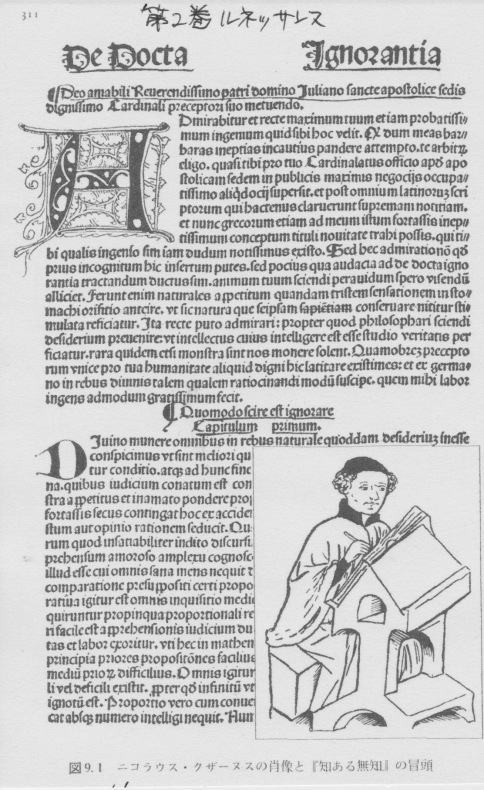 311
第2巻 ルネッサンス
De Docta Ignorantia
¶Deo amabili Reuerendissimo patri domino Juliano sancte apostolice sedis
dignissimo Cardinali preceptori suo metuendo.
ADmirabitur et recte maximum tuum et iam probatissi-
mum ingenium quid sibi hoc velit. dum meas bar-
baras ineptias incautius pandere attempto. te arbitrū
eligo. quasi tibi pro tuo Cardinalatus officio apd apo
stolicam sedem in publicis maximis negocijs occupa-
tissimo aliqd ocij supersit. et post omnium latinorum scri
ptorum qui hactenus claruerunt supremam notitiam.
et nunc grecorum etiam ad meum istum fortassis inep-
tissimum conceptum tituli nouitate trahi possis. qui ti-
bi qualis ingenio sim iam dudum notissimus existo. Sed hec admirationō qđ
prius incognitum hic insertum putes. sed pocius qua audacia ad de docta igno
rantia tractandum ductus sim. animum tuum sciendi peruaidum spero visendū
alliciet. Ferunt enim naturales appetitum quandam tristem sensationem in sto-
machi orificio anteire. vt sic natura que seipsam conseruare nititur sti-
mulata reficiatur. Ita recte puto admirari: propter quod philosophari sciendi
desiderium preuenire: vt intellectus cuius intelligere est esse studio veritatis per
ficiatur. rara quidem etsi monstra sint nos mouere solent. Quamobrez precepto
rum vnice pro tua humanitate aliquid digni hic latitare existimes: et ex germa-
no in rebus diuinis talem qualem ratiocinandi modū suscipe. quem mihi labor
ingens admodum gratissimum fecit.
¶Quomodo scire est ignorare
Capitulum primum.
DJuino munere omnibus in rebus naturale quoddam desideriuz inesse
conspicimus vt sint meliori qu
tur conditio. atqz ad hunc fine
na. quibus iudicium conatum est con
stra appetitus et in amato pondere
fortassis secus contingat hoc ex accide
stum aut opinio rationem seducit. Qu
rum quod insatiabiliter indito discursu
prehensum amoroso amplexu cognosc
illud esse cui omnis sana mens nequit
comparatione presuppositi certi propo
ratiua igitur est omnis inquisitio medi
quiruntur propinqua proportionali re
ri facile est apprehensionis iudicium du
tas et labor exoritur. vti hec in mathem
principia priores propositōnes facilius
mediū difficilius. Omnis igitur
li vel deficili existit. infinitū vt
ignotū est. Proportio vero cum conue
cat absqz numero intelligi nequit. Num
図9.1 ニコラウス・クザーヌスの肖像と『知ある無知』の冒頭